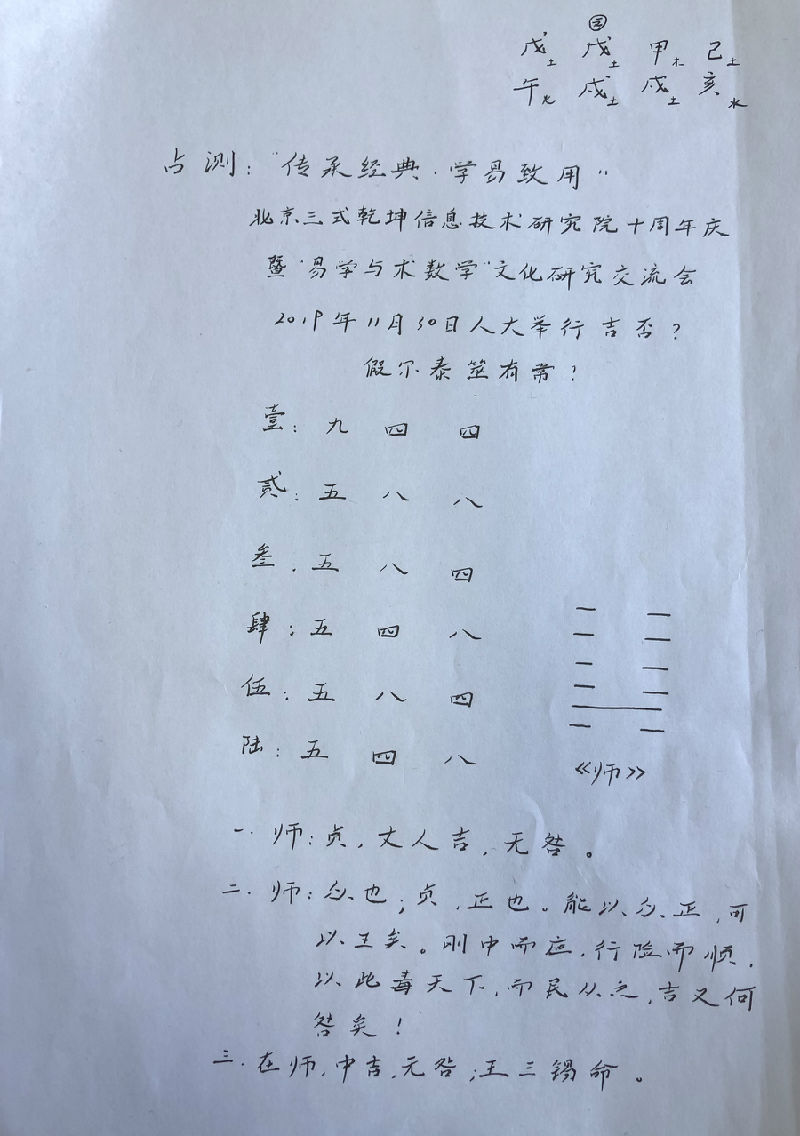 戊土 戊土 甲木 己土
午火 戌土 戌土 亥水
占测：“传承经典·学易致用”
北京三式乾坤信息技术研究院十周年庆
暨“易学与术数学”文化研究交流会
2019年11月30日人大举行吉否？
假尔泰筮有常？
壹：九 四 四
贰：五 八 八
叁：五 八 四
肆：五 四 八
伍：五 八 四
陆：五 四 八
《师》
一．师：贞，丈人吉，无咎。
二．师：众也；贞，正也。能以众正，可
以王矣。刚中而应，行险而顺，
以此毒天下，而民从之，吉又何
咎矣！
三．在师，中吉，无咎；王三锡命。